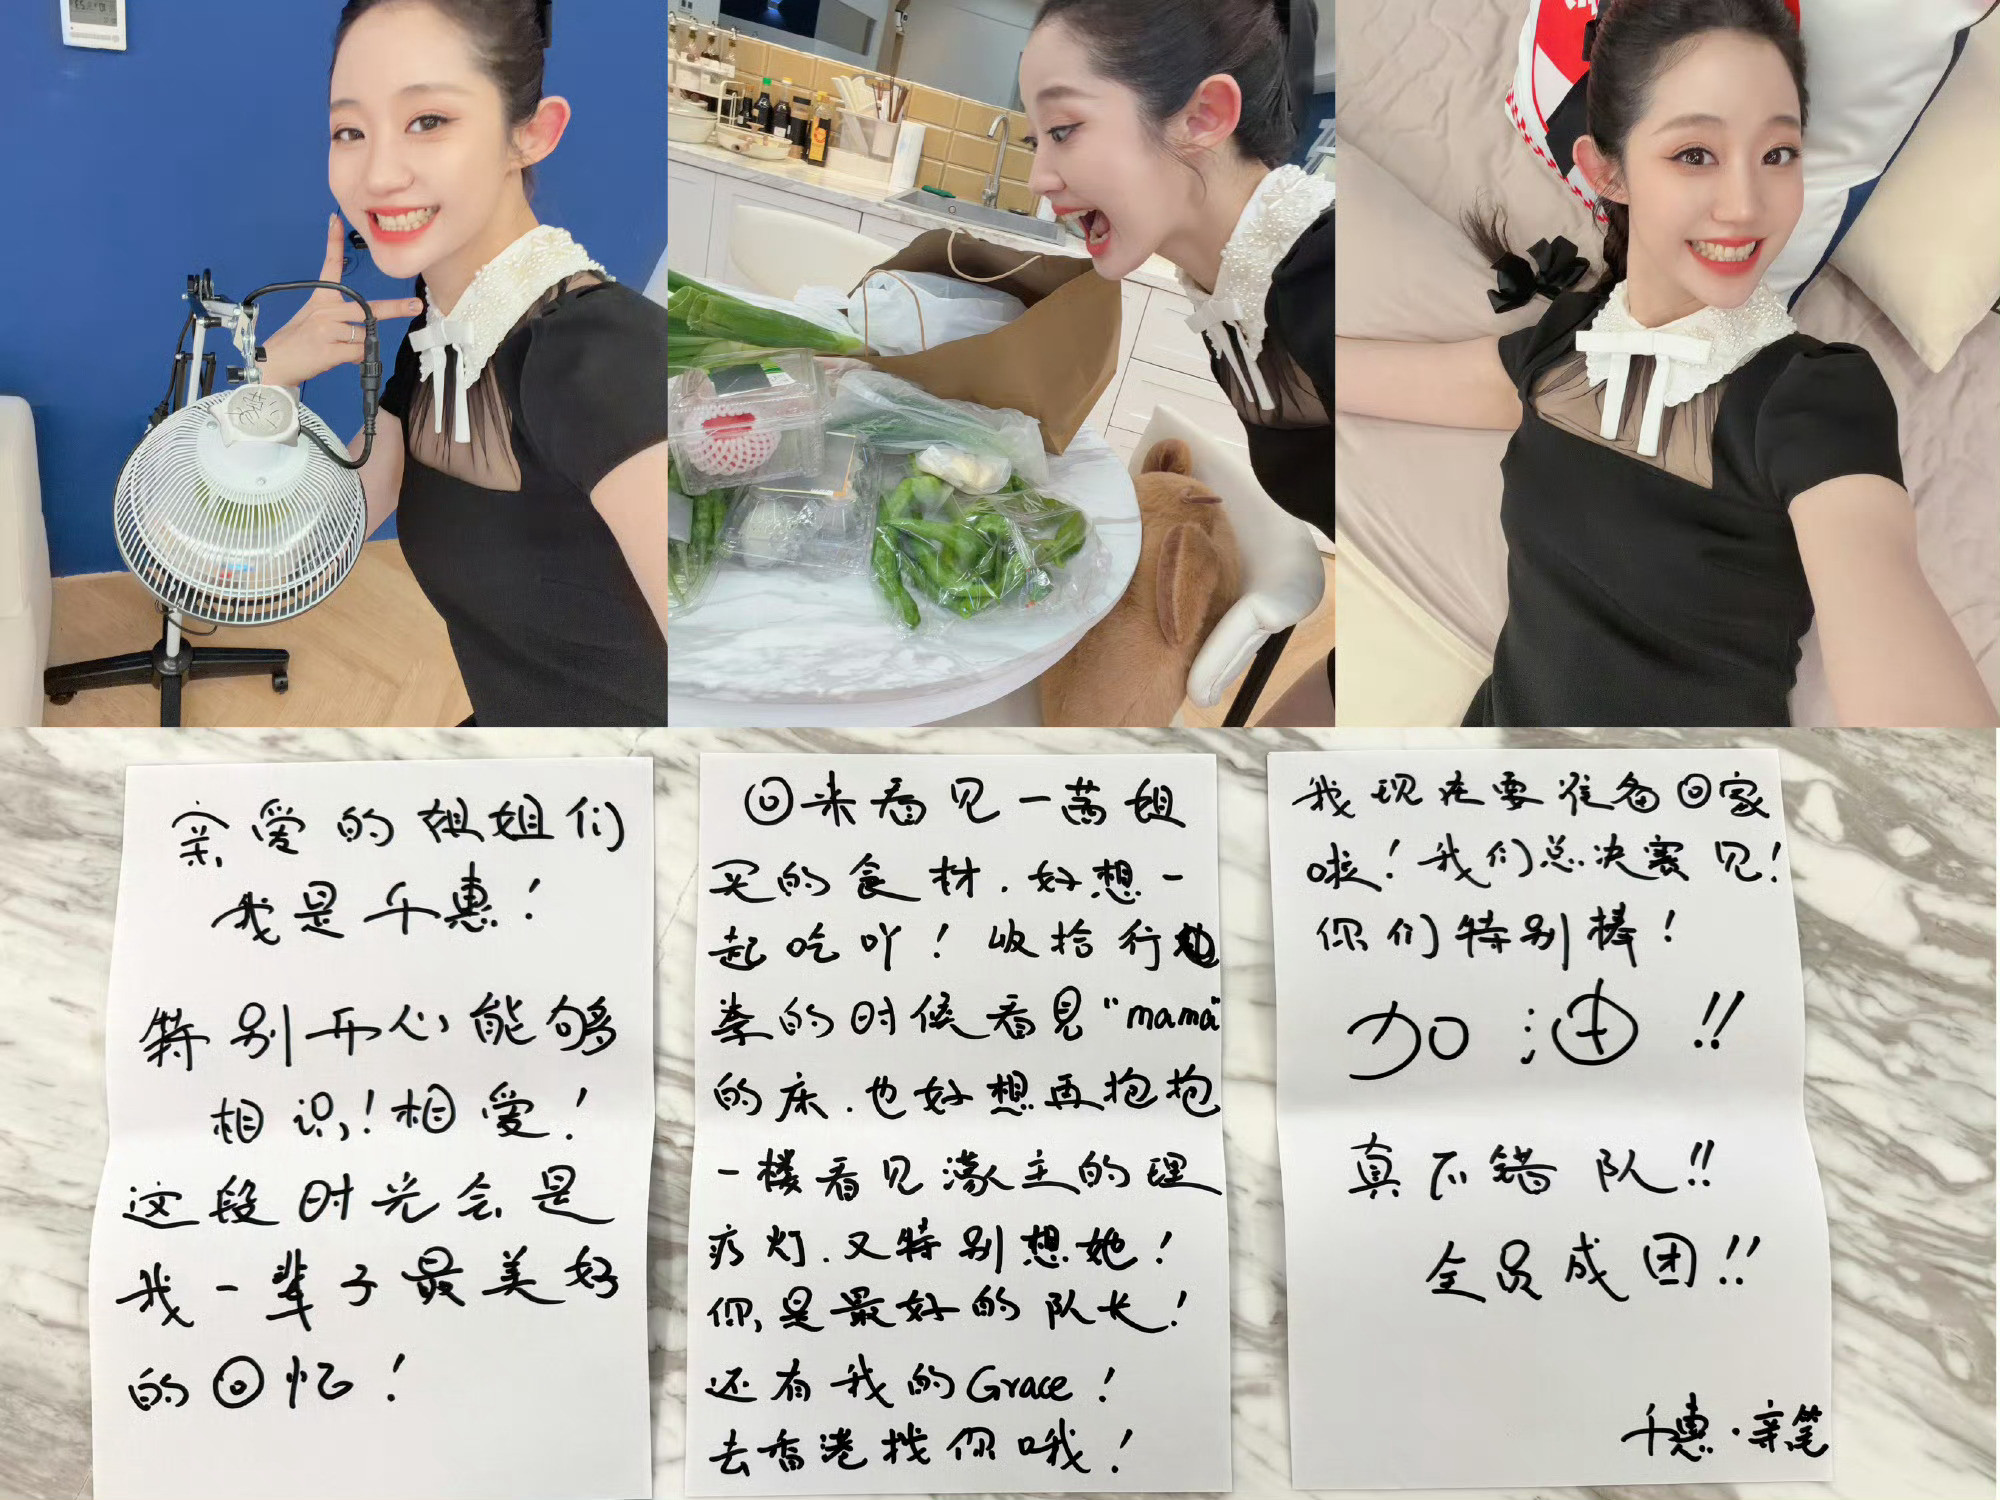 亲爱的姐姐们
我是千惠！
特别开心能够
相识！相爱！
这段时光会是
我一辈子最美好
的回忆！
回来看见一茜姐
买的食材.好想一
起吃吖！收拾行
李的时候看见“mama”
的床.也好想再抱抱
一楼看见濛主的理
疗灯.又特别想她！
你,是最好的队长！
还有我的Grace！
去香港找你哦！
我现在要准备回家
啦！我们总决赛见！
你们特别棒！
加油!!
真不错队!!
全员成团!!
千惠·亲笔